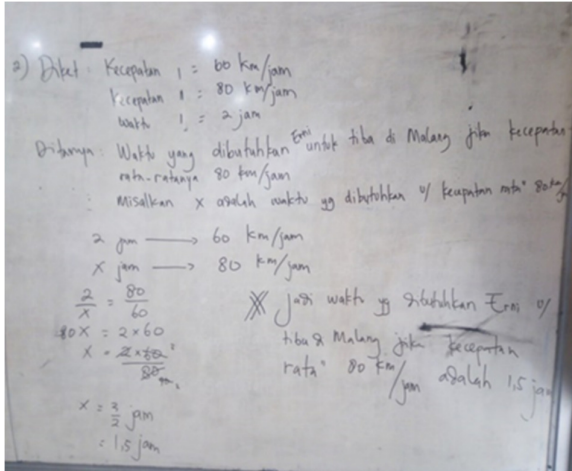 2) Diket : Kecepatan 1 = 60 km/jam
Kecepatan 1 = 80 km/jam
Waktu 1 = 2 jam
Ditanya : Waktu yang dibutuhkan Erni untuk tiba di Malang jika kecepatan
rata-ratanya 80 km/jam
: Misalkan x adalah waktu yg dibutuhkan u/ kecepatan rata" 80 km/jam
2 jam → 60 km/jam
x jam → 80 km/jam
2/x = 80/60
80x = 2 x 60
x = 2 x 60 / 80
x = 3/2 jam
= 1,5 jam
Jadi waktu yg dibutuhkan Erni u/
tiba di Malang jika kecepatan
rata" 80 km/jam adalah 1,5 jam